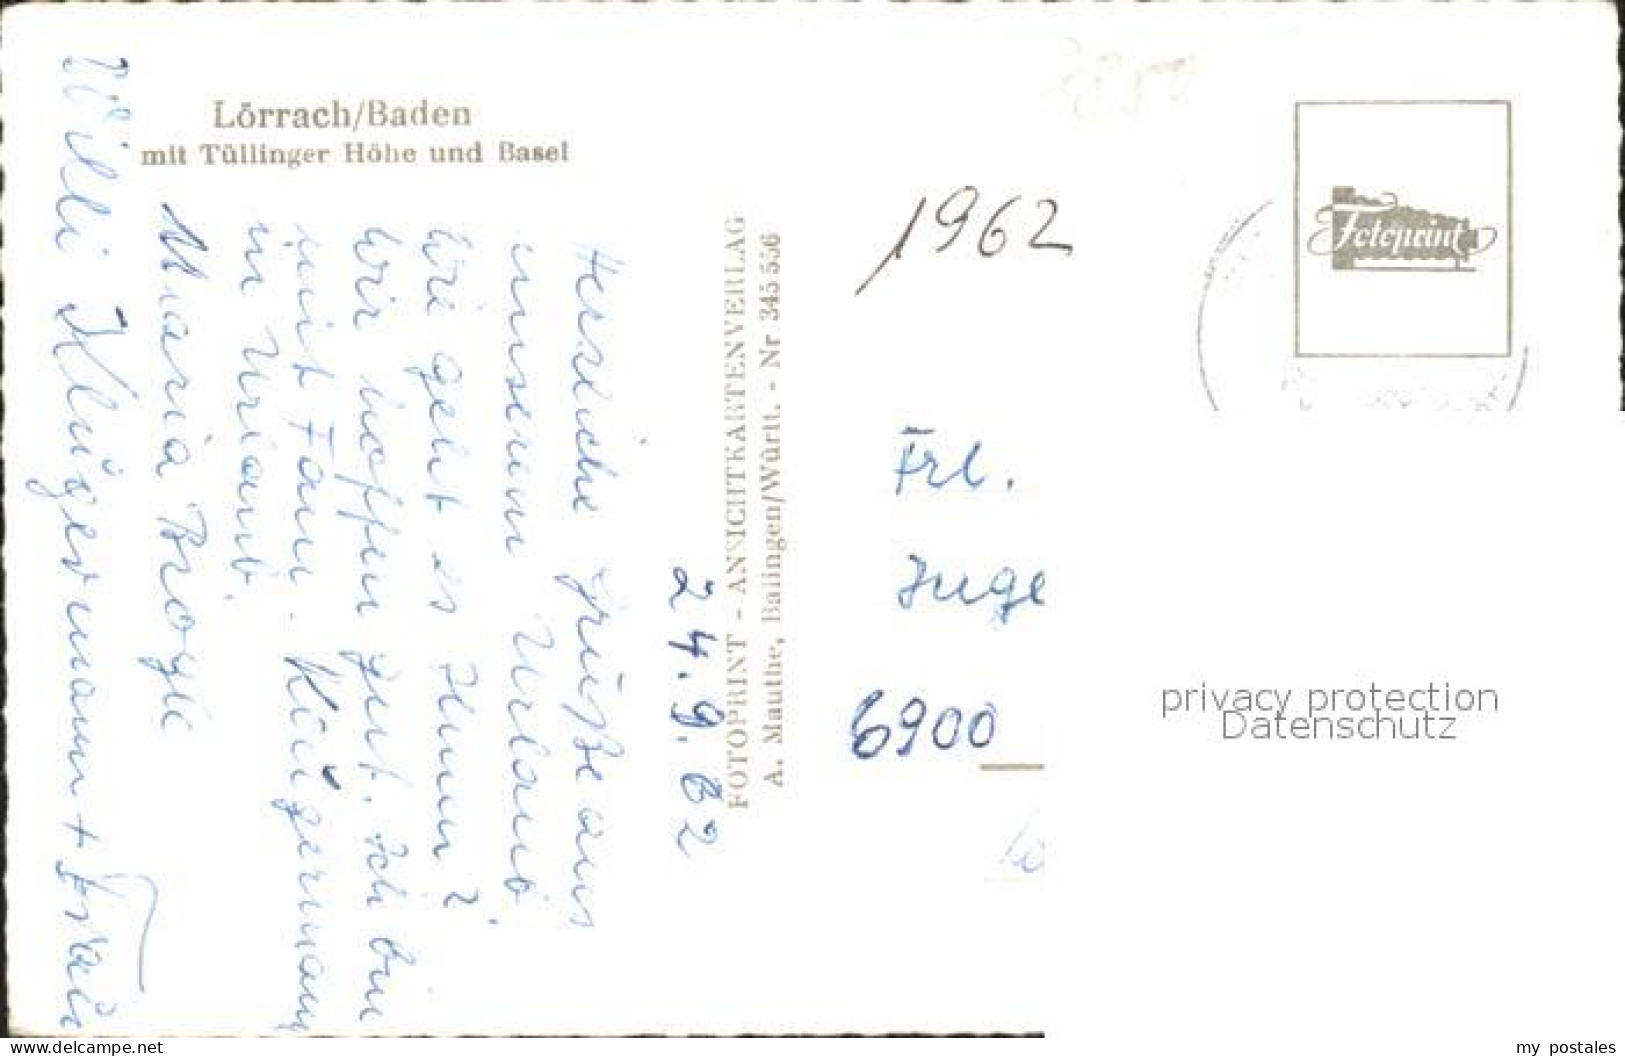 Lörrach/Baden
mit Tüllinger Höhe und Basel
24.9.62
Herzliche Grüße aus
unserem Urlaub.
Wie geht es Ihnen?
Wir hoffen gut. Ich bin
mit Fam. Klügermann
in Urlaub.
Maria
Willi Klügermann + Frau
FOTOPRINT - ANSICHTKARTENVERLAG
A. Mauthe, Balingen/Württ. - Nr 345 556
1962
Fotoprint
Frl.
Inge
6900
privacy protection
Datenschutz
www.delcampe.net
my_postales